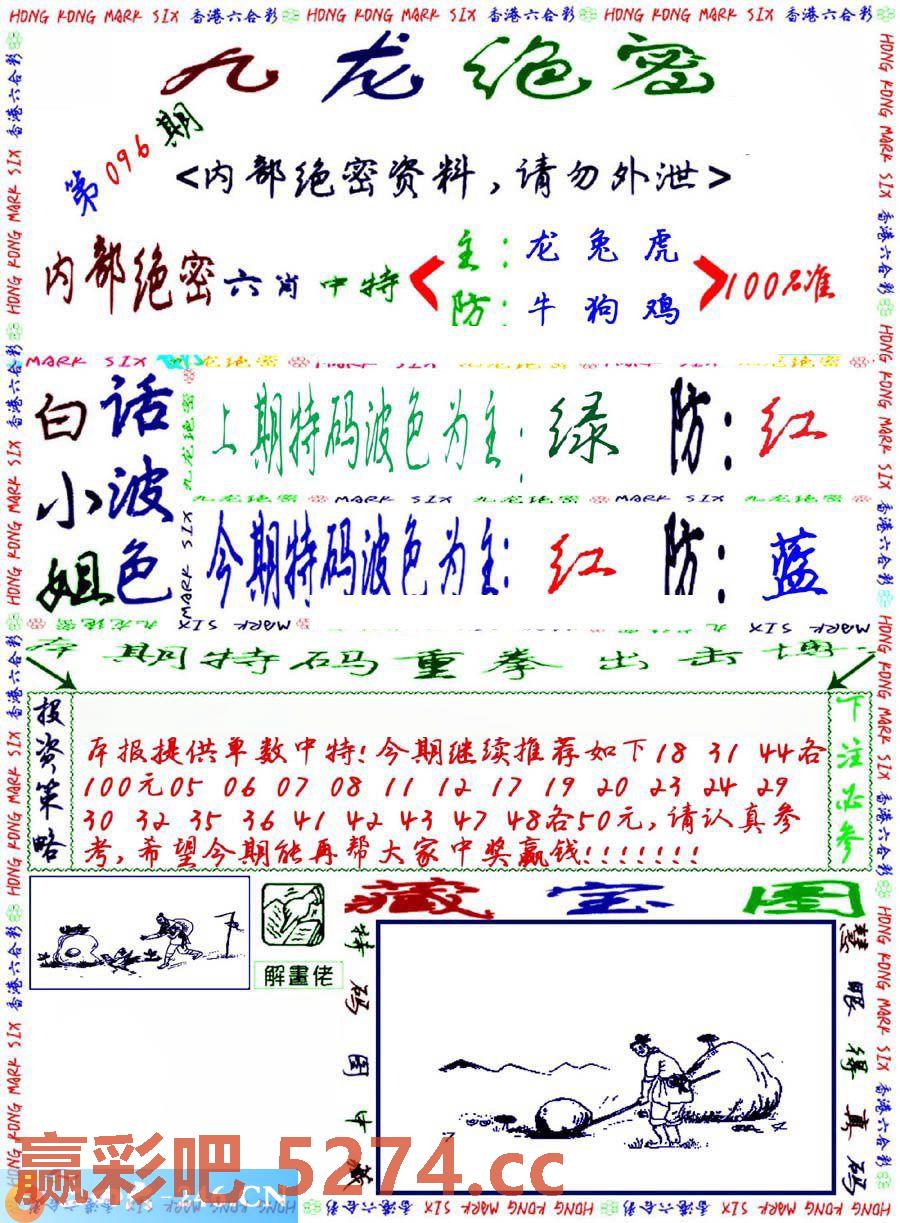 HONG KONG MARK SIX 香港六合彩 HONG KONG MARK SIX 香港六合彩 HONG KONG MARK SIX 香港六合彩
九龙绝密
第096期
<内部绝密资料,请勿外泄>
内部绝密六肖中特
主:龙兔虎
防:牛狗鸡
100%准
白话小波姐色
上期特码波色为主:绿 防:红
今期特码波色为主:红 防:蓝
期特码重拳出击
投资策略
本报提供单数中特!今期继续推荐如下18 31 44各
100元05 06 07 08 11 12 17 19 20 23 24 29
30 32 35 36 41 42 43 47 48各50元,请认真参
考,希望今期能再帮大家中奖赢钱!!!!!!!
下注必参
藏宝图
解畫佬
特码图中藏
慧眼得真码
赢彩吧 5274.cc